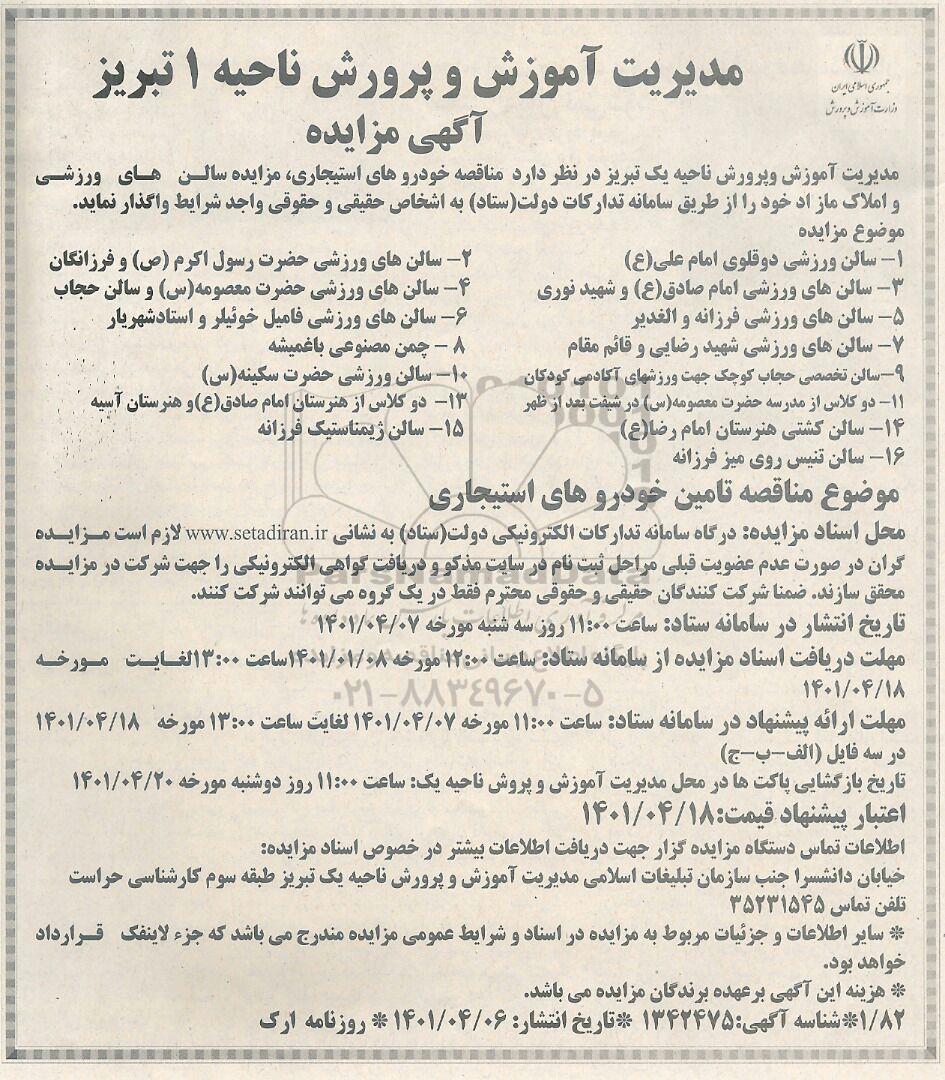 جمهوری اسلامی ایران
وزارت آموزش و پرورش
مدیریت آموزش و پرورش ناحیه ۱ تبریز
آگهی مزایده
مدیریت آموزش وپرورش ناحیه یک تبریز در نظر دارد مناقصه خودرو های استیجاری، مزایده سالن های ورزشی
و املاک ماز اد خود را از طریق سامانه تدارکات دولت(ستاد) به اشخاص حقیقی و حقوقی واجد شرایط واگذار نماید.
موضوع مزایده
۱- سالن ورزشی دوقلوی امام علی(ع)
۲- سالن های ورزشی حضرت رسول اکرم (ص) و فرزانگان
۳- سالن های ورزشی امام صادق(ع) و شهید نوری
۴- سالن های ورزشی حضرت معصومه(س) و سالن حجاب
۵- سالن های ورزشی فرزانه و الغدیر
۶- سالن های ورزشی فامیل خوئیلر و استادشهریار
۷- سالن های ورزشی شهید رضایی و قائم مقام
۸ - چمن مصنوعی باغمیشه
۹-سالن تخصصی حجاب کوچک جهت ورزشهای آکادمی کودکان
۱۰- سالن ورزشی حضرت سکینه(س)
۱۱- دو کلاس از مدرسه حضرت معصومه(س) در شیفت بعد از ظهر
۱۳- دو کلاس از هنرستان امام صادق(ع)و هنرستان آسیه
۱۴- سالن کشتی هنرستان امام رضا(ع)
۱۵- سالن ژیمناستیک فرزانه
۱۶- سالن تنیس روی میز فرزانه
موضوع مناقصه تامین خودرو های استیجاری
محل اسناد مزایده: درگاه سامانه تدارکات الکترونیکی دولت(ستاد) به نشانی www.setadiran.ir لازم است مزایده
گران در صورت عدم عضویت قبلی مراحل ثبت نام در سایت مذکو و دریافت گواهی الکترونیکی را جهت شرکت در مزایده
محقق سازند. ضمنا شرکت کنندگان حقیقی و حقوقی محترم فقط در یک گروه می توانند شرکت کنند.
تاریخ انتشار در سامانه ستاد: ساعت ۱۱:۰۰ روز سه شنبه مورخه ۱۴۰۱/۰۴/۰۷
مهلت دریافت اسناد مزایده از سامانه ستاد: ساعت ۱۲:۰۰ مورخه ۱۴۰۱/۰۱/۰۸ساعت ۱۳:۰۰لغایت مورخه
۱۴۰۱/۰۴/۱۸
مهلت ارائه پیشنهاد در سامانه ستاد: ساعت ۱۱:۰۰ مورخه ۱۴۰۱/۰۴/۰۷ لغایت ساعت ۱۳:۰۰ مورخه ۱۴۰۱/۰۴/۱۸
در سه فایل (الف-ب-ج)
تاریخ بازگشایی پاکت ها در محل مدیریت آموزش و پروش ناحیه یک: ساعت ۱۱:۰۰ روز دوشنبه مورخه ۱۴۰۱/۰۴/۲۰
اعتبار پیشنهاد قیمت:۱۴۰۱/۰۴/۱۸
اطلاعات تماس دستگاه مزایده گزار جهت دریافت اطلاعات بیشتر در خصوص اسناد مزایده:
خیابان دانشسرا جنب سازمان تبلیغات اسلامی مدیریت آموزش و پرورش ناحیه یک تبریز طبقه سوم کارشناسی حراست
تلفن تماس ۳۵۲۳۱۵۴۵
* سایر اطلاعات و جزئیات مربوط به مزایده در اسناد و شرایط عمومی مزایده مندرج می باشد که جزء لاینفک قرارداد
خواهد بود.
* هزینه این آگهی برعهده برندگان مزایده می باشد.
۱/۸۲*شناسه آگهی:۱۳۴۲۴۷۵ *تاریخ انتشار: ۱۴۰۱/۰۴/۰۶ * روزنامه ارک
ParsNamadData
۰۲۱-۸۸۳۴۹۶۷۰-۵